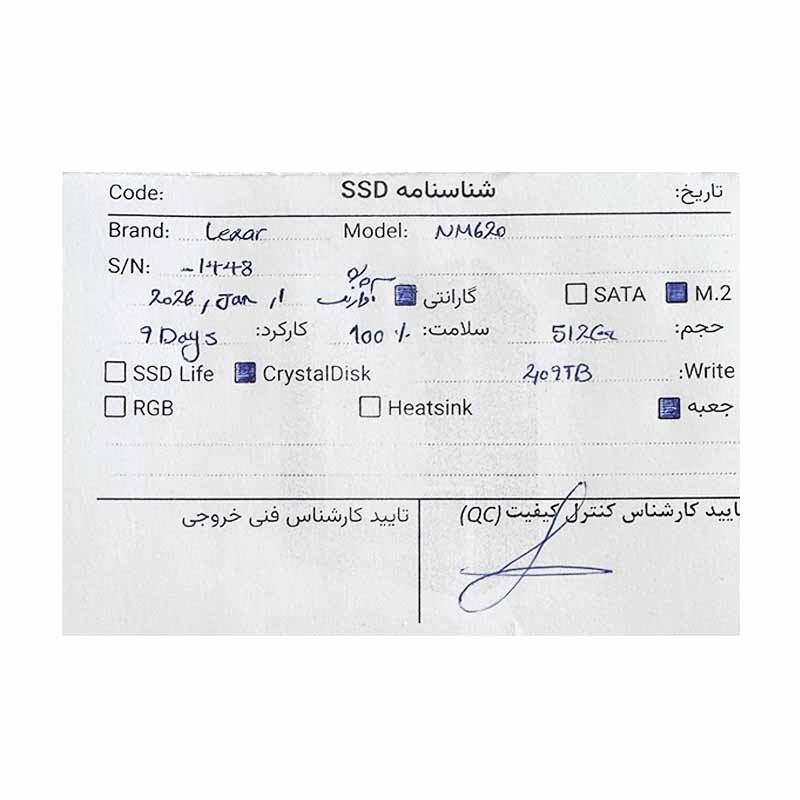 شناسنامه SSD تاریخ: Code:
Brand: Lexar Model: NM620
S/N: -1448
M.2 SATA گارانتی آواژنگ 2026, Jan, 1
حجم: 512GB سلامت: 100 % کارکرد: 9 Days
Write: 2,09TB CrystalDisk SSD Life
جعبه Heatsink RGB
تایید کارشناس کنترل کیفیت (QC) تایید کارشناس فنی خروجی